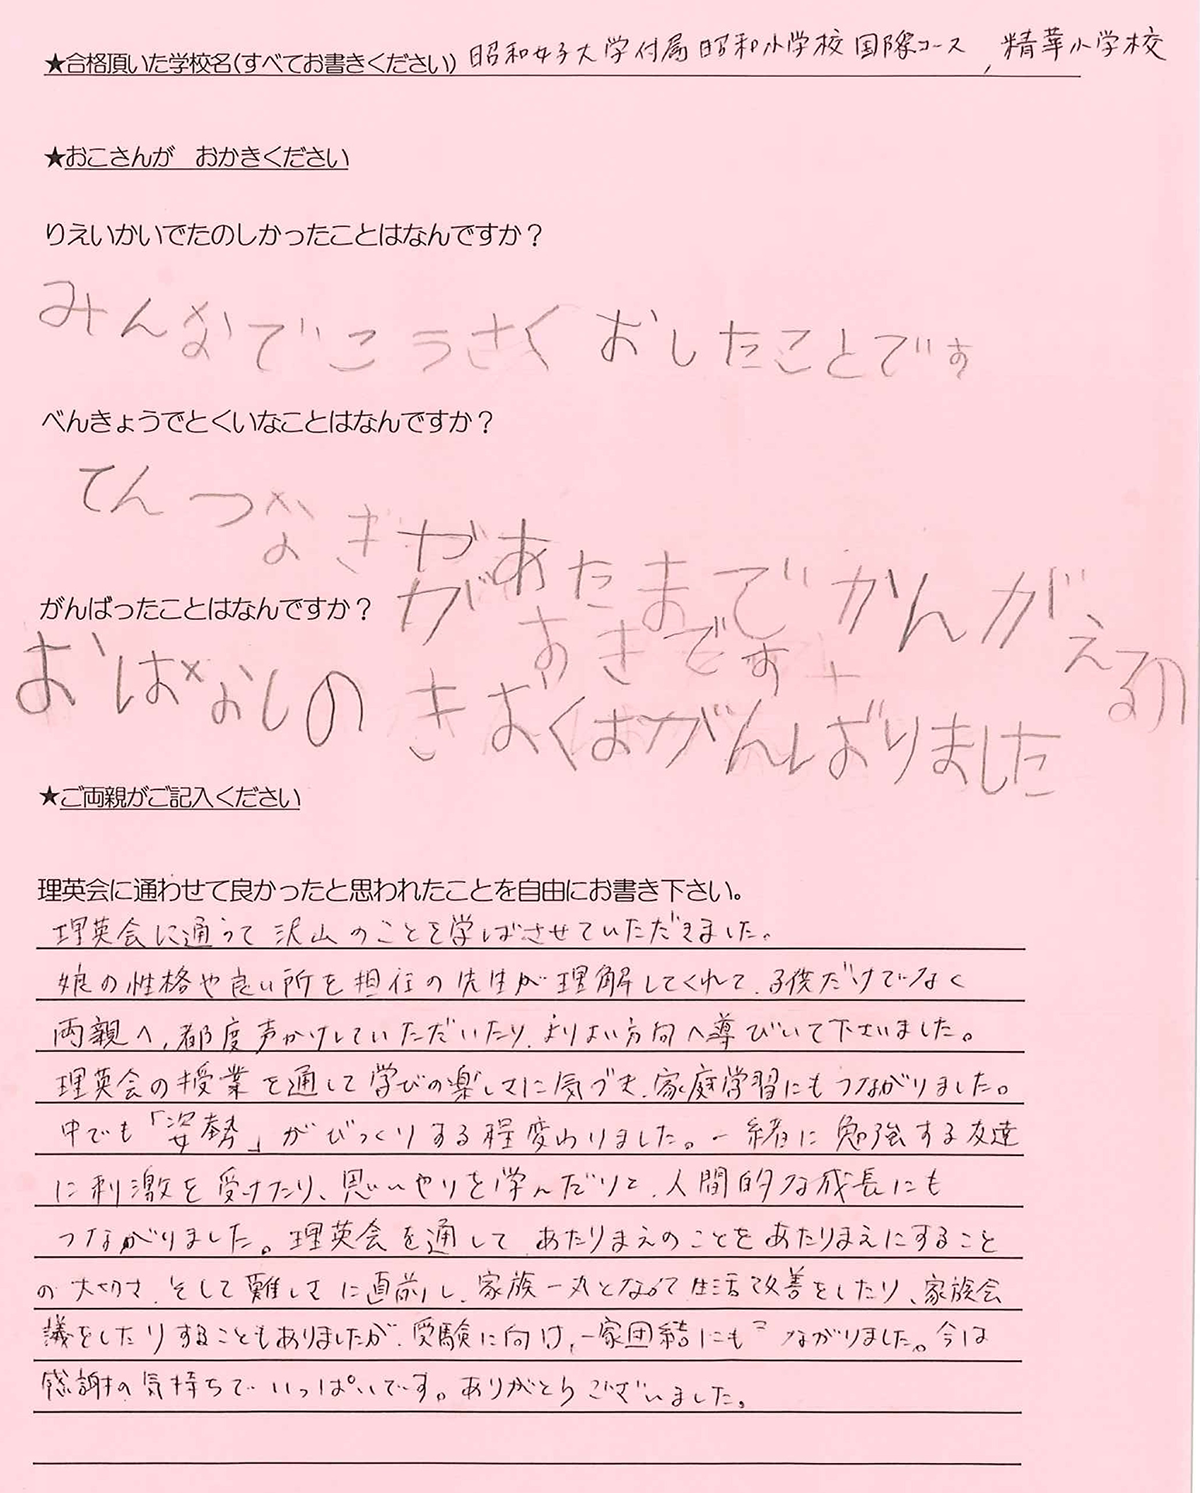 ★合格頂いた学校名(すべてお書きください) 昭和女子大学付属昭和小学校国際コース, 精華小学校
★おこさんが おかきください
りえいかいでたのしかったことはなんですか?
みんなでこうさくおしたことです
べんきょうでとくいなことはなんですか?
てんつなぎや あたまでかんがえるの
がすきです
がんばったことはなんですか?
おはなしのきおくはがんばりました
★ご両親がご記入ください
理英会に通わせて良かったと思われたことを自由にお書き下さい。
理英会に通って沢山のことを学ばさせていただきました。
娘の性格や良い所を担任の先生が理解してくれて、子供だけでなく
両親へ、都度声かけしていただいたり、よりよい方向へ導びいて下さいました。
理英会の授業を通して学びの楽しさに気づき、家庭学習にもつながりました。
中でも「姿勢」がびっくりする程変わりました。一緒に勉強する友達
に刺激を受けたり、思いやりを学んだりと、人間的な成長にも
つながりました。理英会を通して、あたりまえのことをあたりまえにすること
の大切さ、そして難しさに直前し、家族一丸となって生活改善をしたり、家族会
議をしたりすることもありましたが、受験に向け、一家団結にもつながりました。今は
感謝の気持ちでいっぱいです。ありがとうございました。